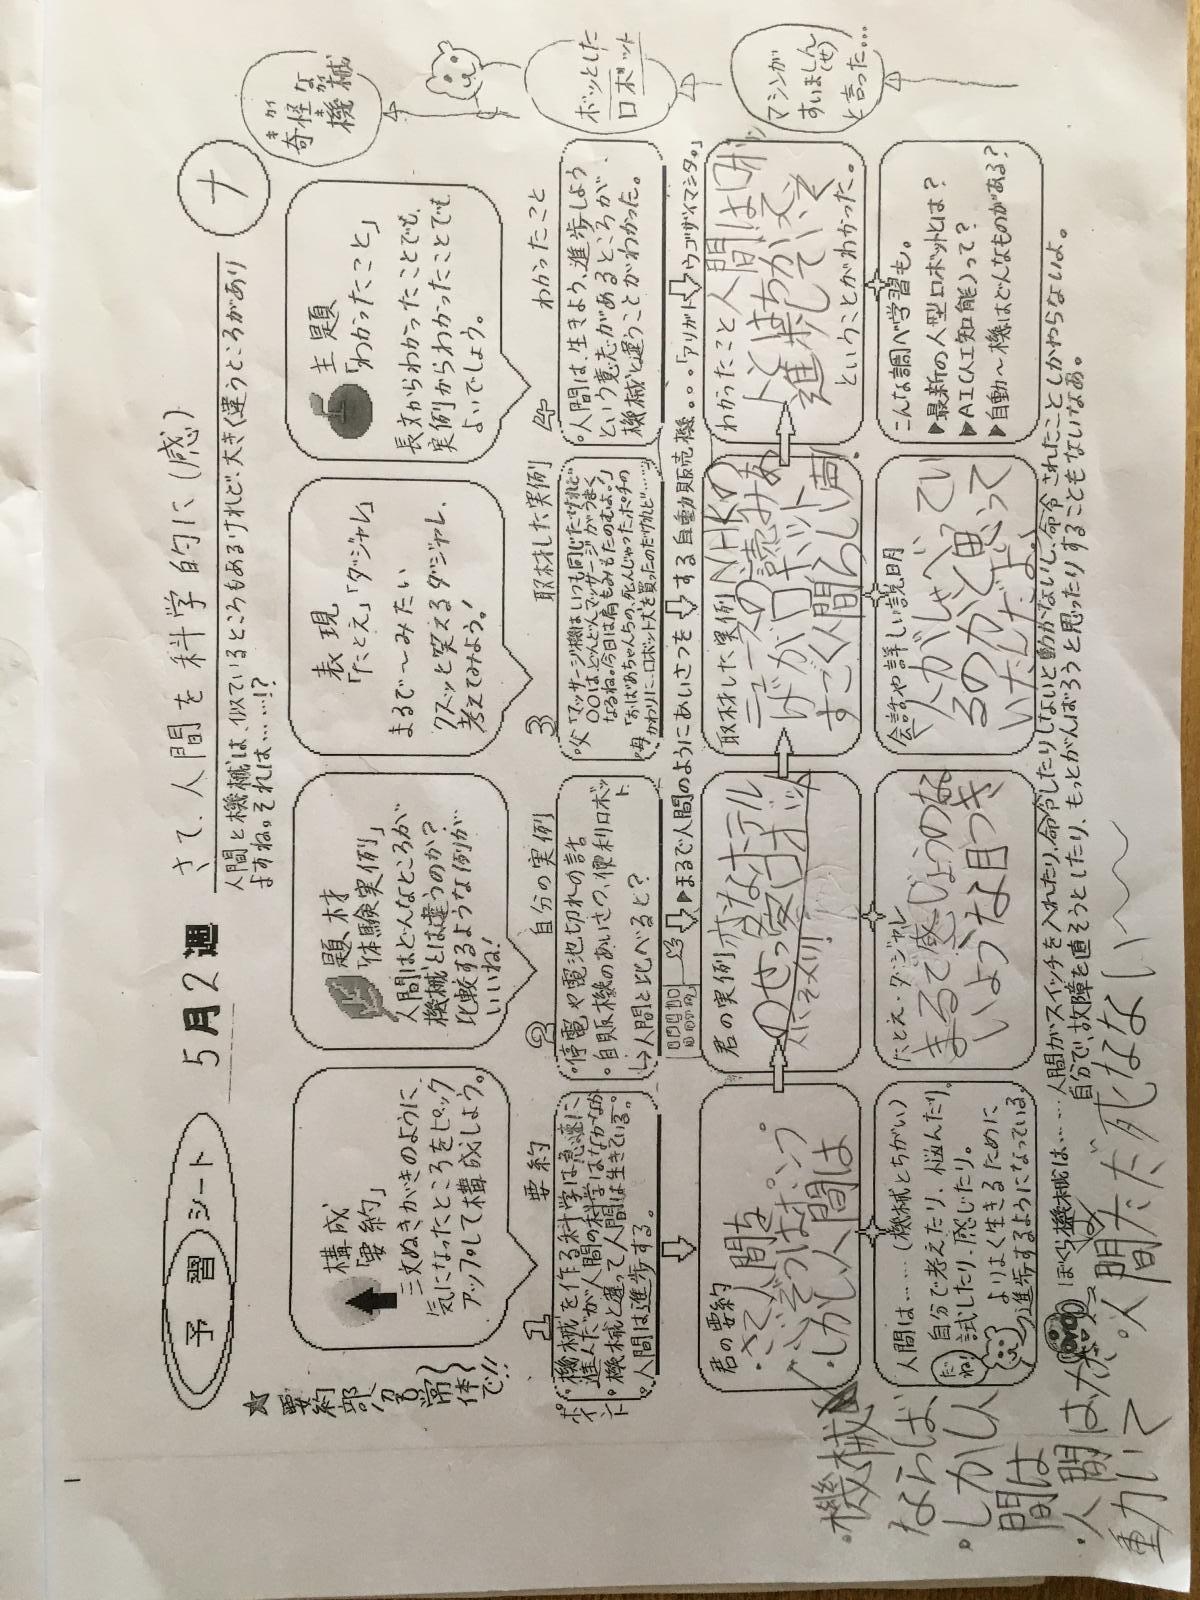 予習シート
5月2週
さて、人間を科学的に(感)
ナ
人間と機械は、似ているところもあるけれど、大きく違うところがあり
ますね。それは……!?
奇怪な機械
きかい
ボッとした
ロボット
マシンが
すいましん
(せ)
と言った…
★要約部
常体で!!
構成
「要約」
三文ぬきがきのように
気になったところをピック
アップして構成しよう。
題材
「体験実例」
人間はどんなところが
機械とは違うのか?
比較するような例が
いいね!
表現
「たとえ」「ダジャレ」
まるで〜みたい
クスッと笑えるダジャレ、
考えてみよう!
主題
「わかったこと」
長文からわかったことでも、
実例からわかったことでも
よいでしょう。
1 要約
ポイント
・機械を作る科学は急速に
進んだが人間の科学はなかなか
・機械と違って人間は生きている。
・人間は進歩する。
2 自分の実例
・停電や電池切れの話
・自販機のあいさつ、便利ロボット
↳人間と比べると?
3 取材した実例
・父「マッサージ機はいつも同じだけれど
〇〇は、どんどんマッサージがうまく
なるね。今日は肩もみもたのむよ。」
・母「おばあちゃんちの、死んじゃったポチの
かわりに、ロボット犬を買ったのだけれど……」
4 わかったこと
・人間は、生きよう、進歩しよう
という意志があるところが、
機械と違うことがわかった。
▶まるで人間のようにあいさつをする自動販売機。。。「アリガトウゴザイマシタ。」
君の要約
・さて人間を
・しんぞうはポンプ
・しかし人間は
君の実例
変なホテル
取材した実例
NHKの
ニュースの読みあ
げがロボット
すごく人間らしい声
わかったこと
人間はロボッ
トとは違ちがって
進歩していく
ということがわかった。
人間は……(機械とちがい)
自分で考えたり、悩んだり、
試したり、感じたり。
よりよく生きるために
進歩するようになっている。
だね
たとえ・ダジャレ
まるで感じょうのな
いような目つき
会話や詳しい説明
人がしゃべってい
るのかと思って
いたんだよ。
こんな調べ学習も。
▶最新の人型ロボットとは?
▶AI(人工知能)って?
▶自動〜機はどんなものがある?
ぼくら機械は……人間がスイッチを入れたり、命令したりしないと動かないし、命令されたことしかわらないよ。
自分で、故障を直そうとしたり、もっとがんばろうと思ったりすることもないなあ。
・機械
ならば
・しかし人
間は
・人間は
動いて